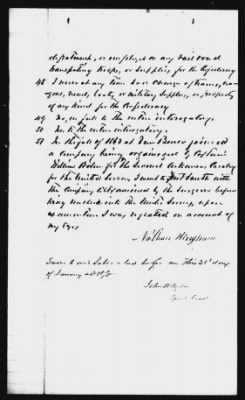 department, or employed on any railroad
transporting troops, or supplies for the Confederacy
48 I never at any time had charge of trains, wa
gons, boats, Cattle or Military Supplies, or property
of any kind for the Confederacy
49 No, in full to the entire interrogatory.
50 No. to the entire interrogatory.
51 In the fall of 1863 at Dar I joined
a Company being organized by Captain
William for the Second Arkansas Cavalry
for the United Service, I went to Fort Smith with
the Company & Examined by the Surgeon before
being mustered into the Service, upon
examination I was rejected on account of
my Eyes
Nathan
Sworn to and Subscribed before me this 21st day
of January
John